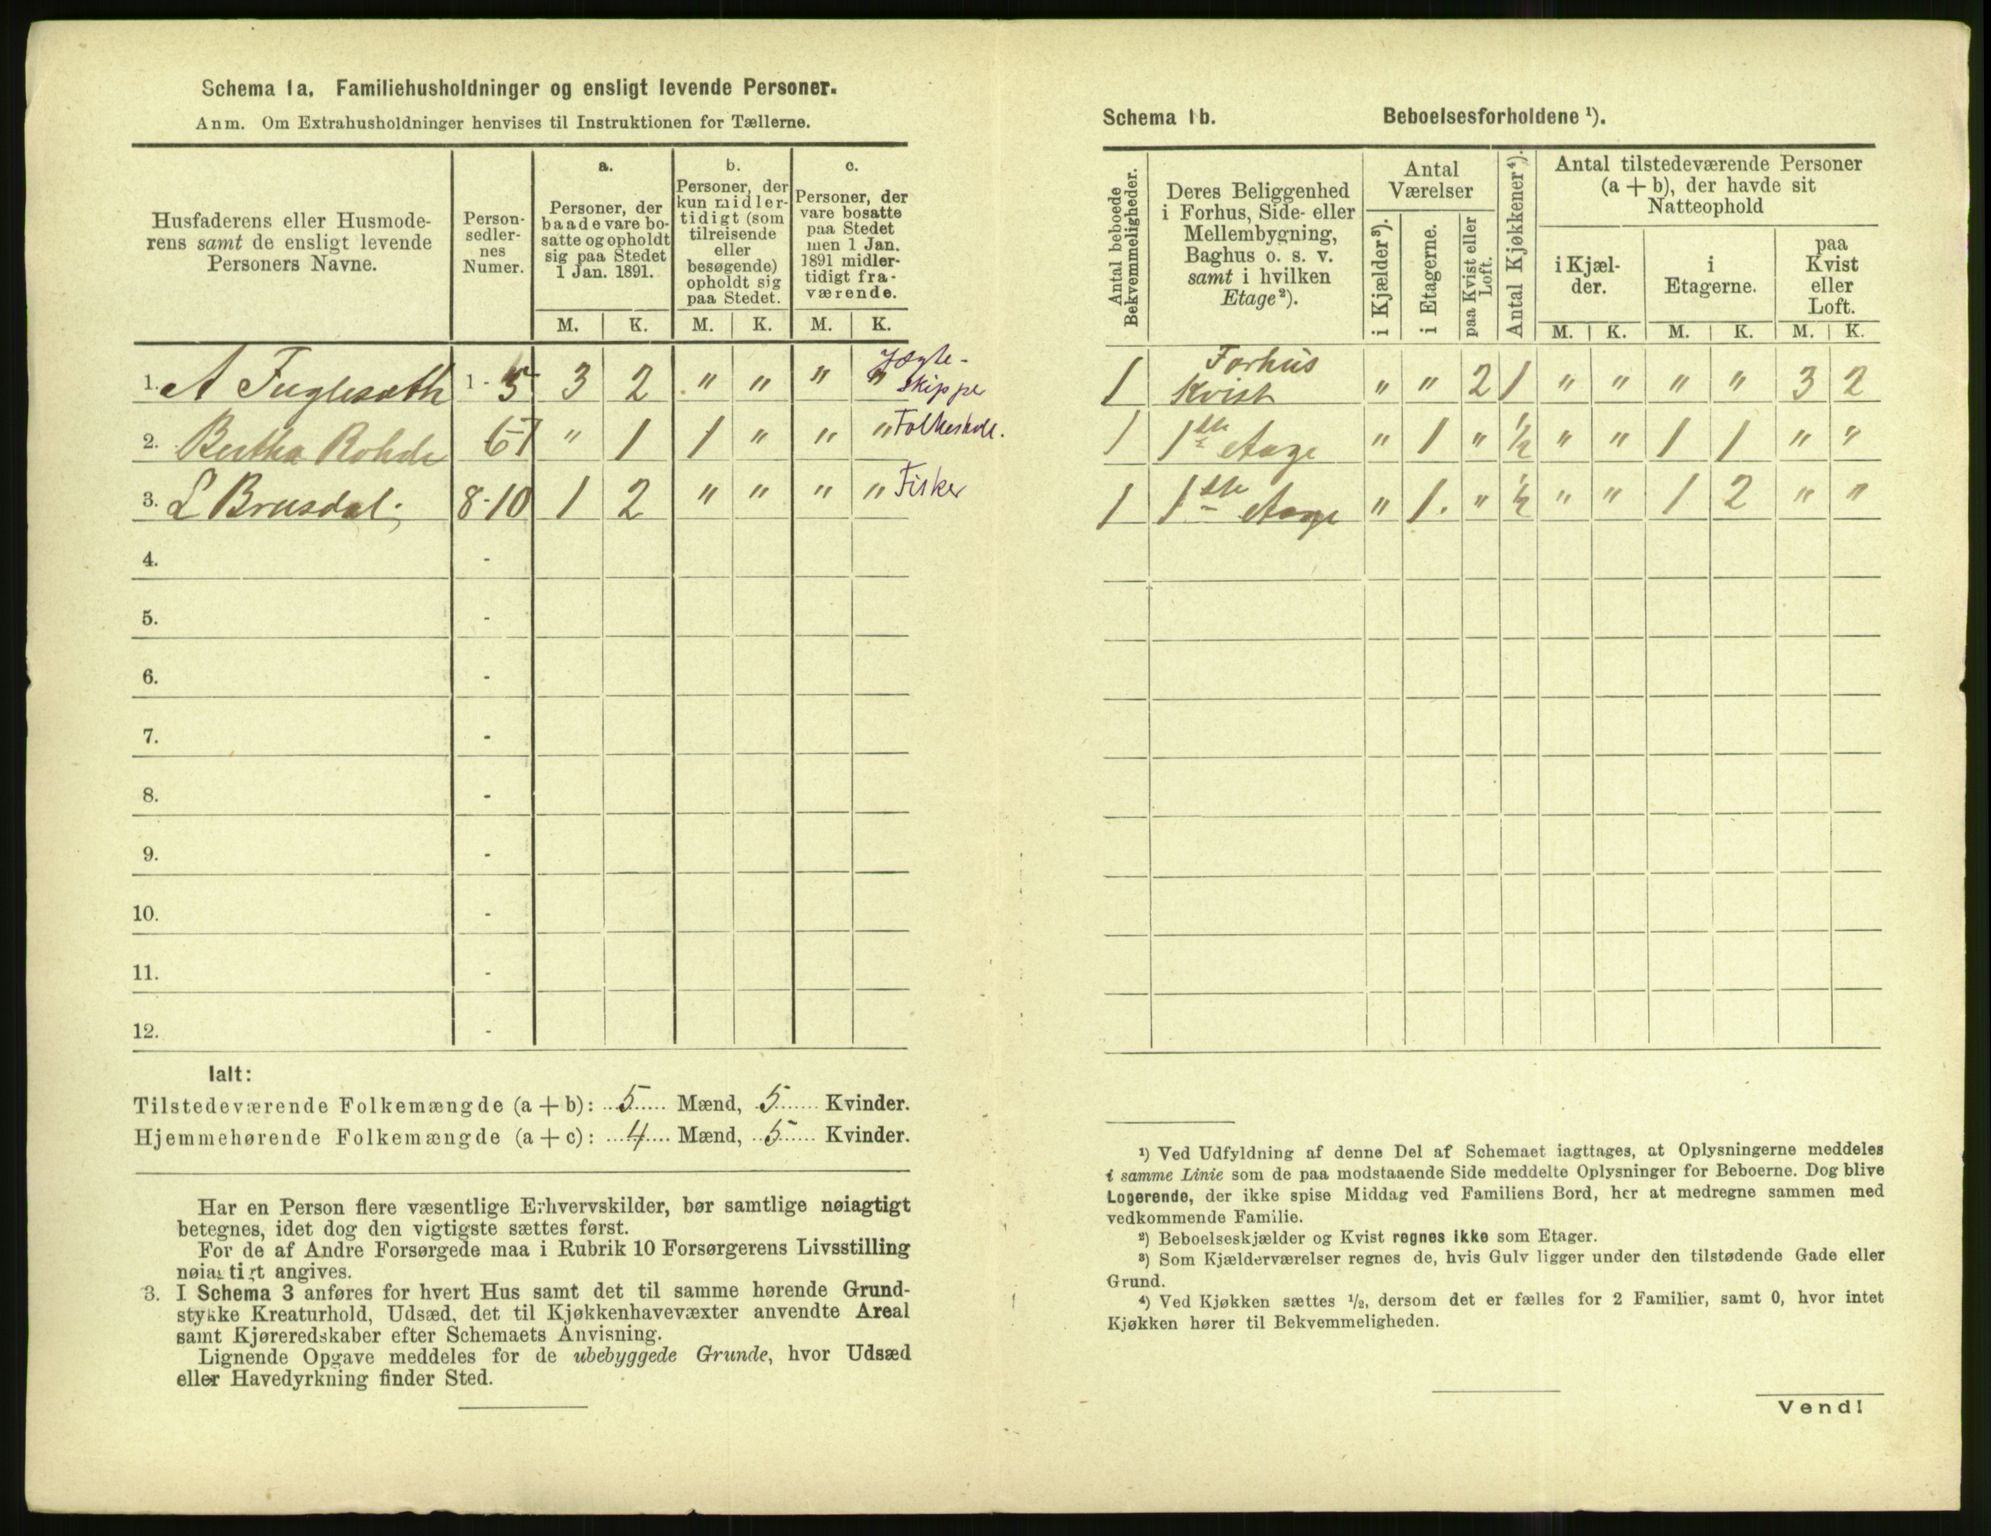 Schema 1a. Familiehusholdninger og ensligt levende Personer.
Anm. Om Extrahusholdninger henvises til Instruktionen for Tællerne.
Husfaderens eller Husmoderens samt de ensligt levende Personers Navne.
Personsedlernes Numer.
a.
Personer, der baade vare bosatte og opholdt sig paa Stedet 1 Jan. 1891.
b.
Personer, der kun midlertidigt (som tilreisende eller besøgende) opholdt sig paa Stedet.
c.
Personer, der vare bosatte paa Stedet men 1 Jan. 1891 midlertidigt fraværende.
M. K. M. K. M. K.
1. A Fuglesæth 1 - 5 3 2 " " " " Jægteskipper
2. Bertha Rohde 6-7 " 1 1 " " " Folkeskol.
3. L Brusdal. 8-10 1 2 " " " " Fisker
4. -
5. -
6. -
7. -
8. -
9. -
10. -
11. -
12. -
Ialt:
Tilstedeværende Folkemængde (a + b): 5 Mænd, 5 Kvinder.
Hjemmehørende Folkemængde (a + c): 4 Mænd, 5 Kvinder.
Har en Person flere væsentlige Erhvervskilder, bør samtlige nøiagtigt
betegnes, idet dog den vigtigste sættes først.
For de af Andre Forsørgede maa i Rubrik 10 Forsørgerens Livsstilling
nøiagtigt angives.
3. I Schema 3 anføres for hvert Hus samt det til samme hørende Grund-
stykke Kreaturhold, Udsæd, det til Kjøkkenhavevæxter anvendte Areal
samt Kjøreredskaber efter Schemaets Anvisning.
Lignende Opgave meddeles for de ubebyggede Grunde, hvor Udsæd
eller Havedyrkning finder Sted.
Schema 1b. Beboelsesforholdene ¹).
Antal beboede Bekvemmeligheder.
Deres Beliggenhed i Forhus, Side- eller Mellembygning, Baghus o. s. v. samt i hvilken Etage²).
Antal Værelser
i Kjælder³).
i Etagerne.
paa Kvist eller Loft.
Antal Kjøkkener⁴).
Antal tilstedeværende Personer (a + b), der havde sit Natteophold
i Kjælder.
i Etagerne.
paa Kvist eller Loft.
M. K. M. K. M. K.
1 Forhus Kvist " " 2 1 " " " " 3 2
1 1ste Etage " 1 " ½ " " 1 1 " "
1 1ste Etage " 1. " ½ " " 1 2 " "
¹) Ved Udfyldning af denne Del af Schemaet iagttages, at Oplysningerne meddeles
i samme Linie som de paa modstaaende Side meddelte Oplysninger for Beboerne. Dog blive
Logerende, der ikke spise Middag ved Familiens Bord, her at medregne sammen med
vedkommende Familie.
²) Beboelseskjælder og Kvist regnes ikke som Etager.
³) Som Kjælderværelser regnes de, hvis Gulv ligger under den tilstødende Gade eller
Grund.
⁴) Ved Kjøkken sættes ½, dersom det er fælles for 2 Familier, samt 0, hvor intet
Kjøkken hører til Bekvemmeligheden.
Vend!